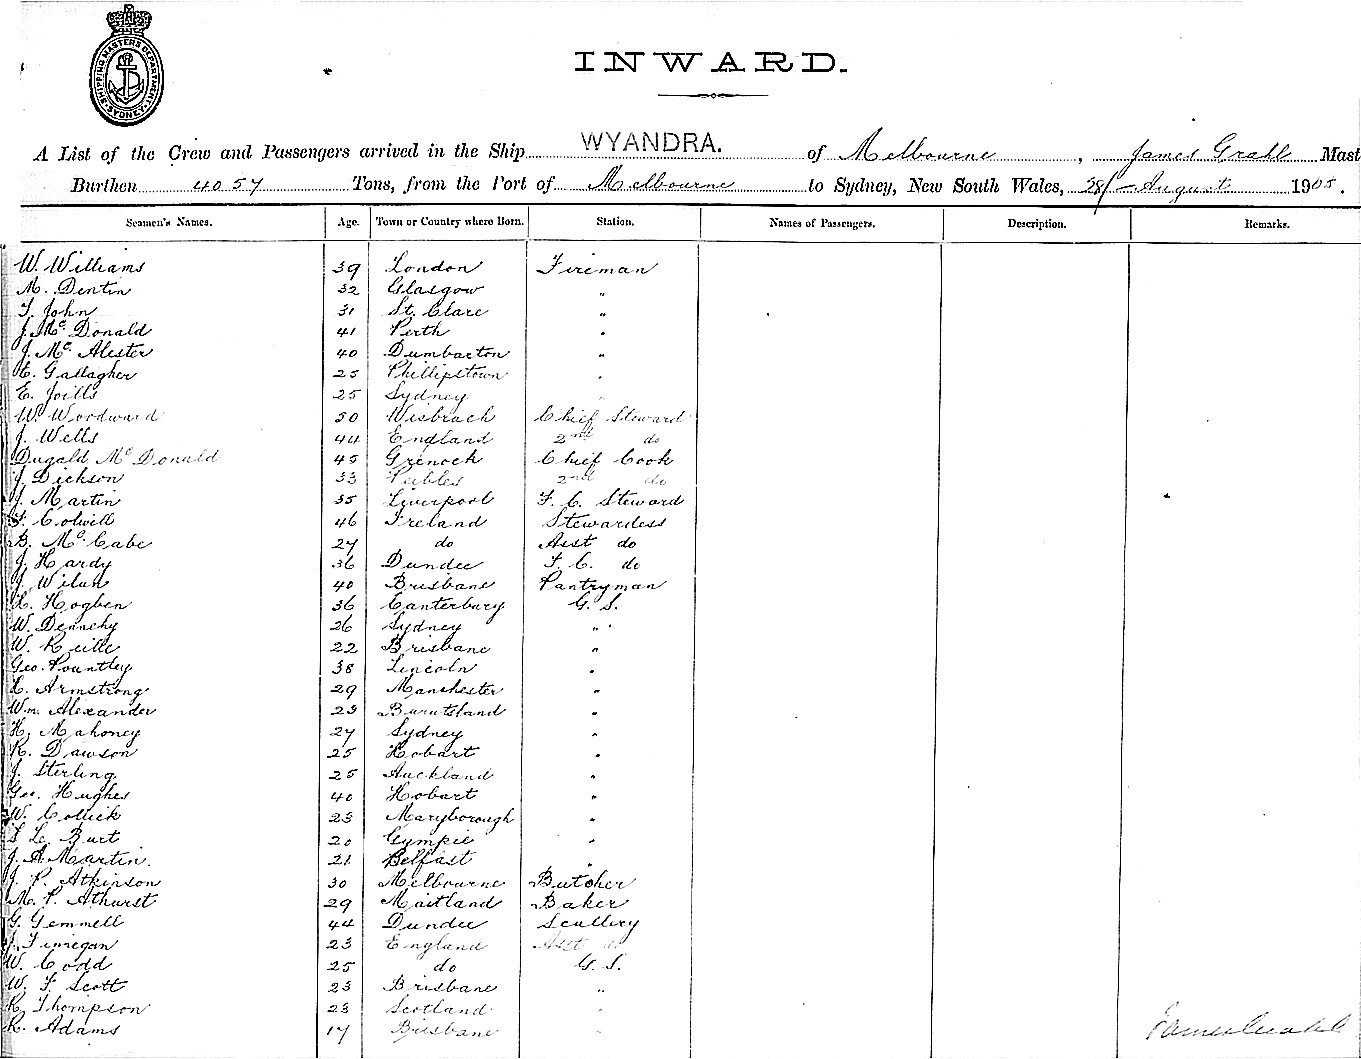 SHIPPING MASTERS DEPARTMENT
SYDNEY
INWARD.
A List of the Crew and Passengers arrived in the Ship WYANDRA. of Melbourne, James Grahl Mast
Burthen 4057 Tons, from the Port of Melbourne to Sydney, New South Wales, 28/ August 1905.
Seamen's Names. Age. Town or Country where Born. Station. Names of Passengers. Description. Remarks.
W. Williams 39 London Fireman
M. Dentin 32 Glasgow "
T. John 31 St. Clare "
J. McDonald 41 Perth "
J. McAlester 40 Dumbarton "
E. Gallagher 25 Phillipstown "
E. Joills 25 Sydney "
W. Woodward 50 Wisbeach Chief Steward
J. Wells 44 England 2nd do
Dugald McDonald 45 Grenock Chief Cook
J. Dickson 33 Peebles 2nd do
J. Martin 35 Liverpool F. C. Steward
F. Colwell 46 Ireland Stewardess
B. McCabe 27 do Asst do
J. Hardy 36 Dundee F. C. do
J. 40 Brisbane Pantryman
H. Hogben 36 Canterbury G. S.
W. Dennehy 26 Sydney "
W. 22 Brisbane "
Geo. Pountley 38 Lincoln "
H. Armstrong 29 Manchester "
Wm. Alexander 23 Burntsland "
H. Mahoney 27 Sydney "
R. Dawson 25 Hobart "
J. Sterling 25 Auckland "
Geo. Hughes 40 Hobart "
W. Collick 23 Maryborough "
S Le Burt 20 Gympie "
J. A. Martin. 21 Belfast "
J. P. Atkinson 30 Melbourne Butcher
M. P. Athurst 29 Maitland Baker
G. Gemmell 44 Dundee Scullery
J. Finnegan 23 England Asst do
W. Codd 25 do G. S.
W. F. Scott 23 Brisbane "
R. Thompson 23 Scotland "
R. Adams 17 Brisbane "
James Grahl